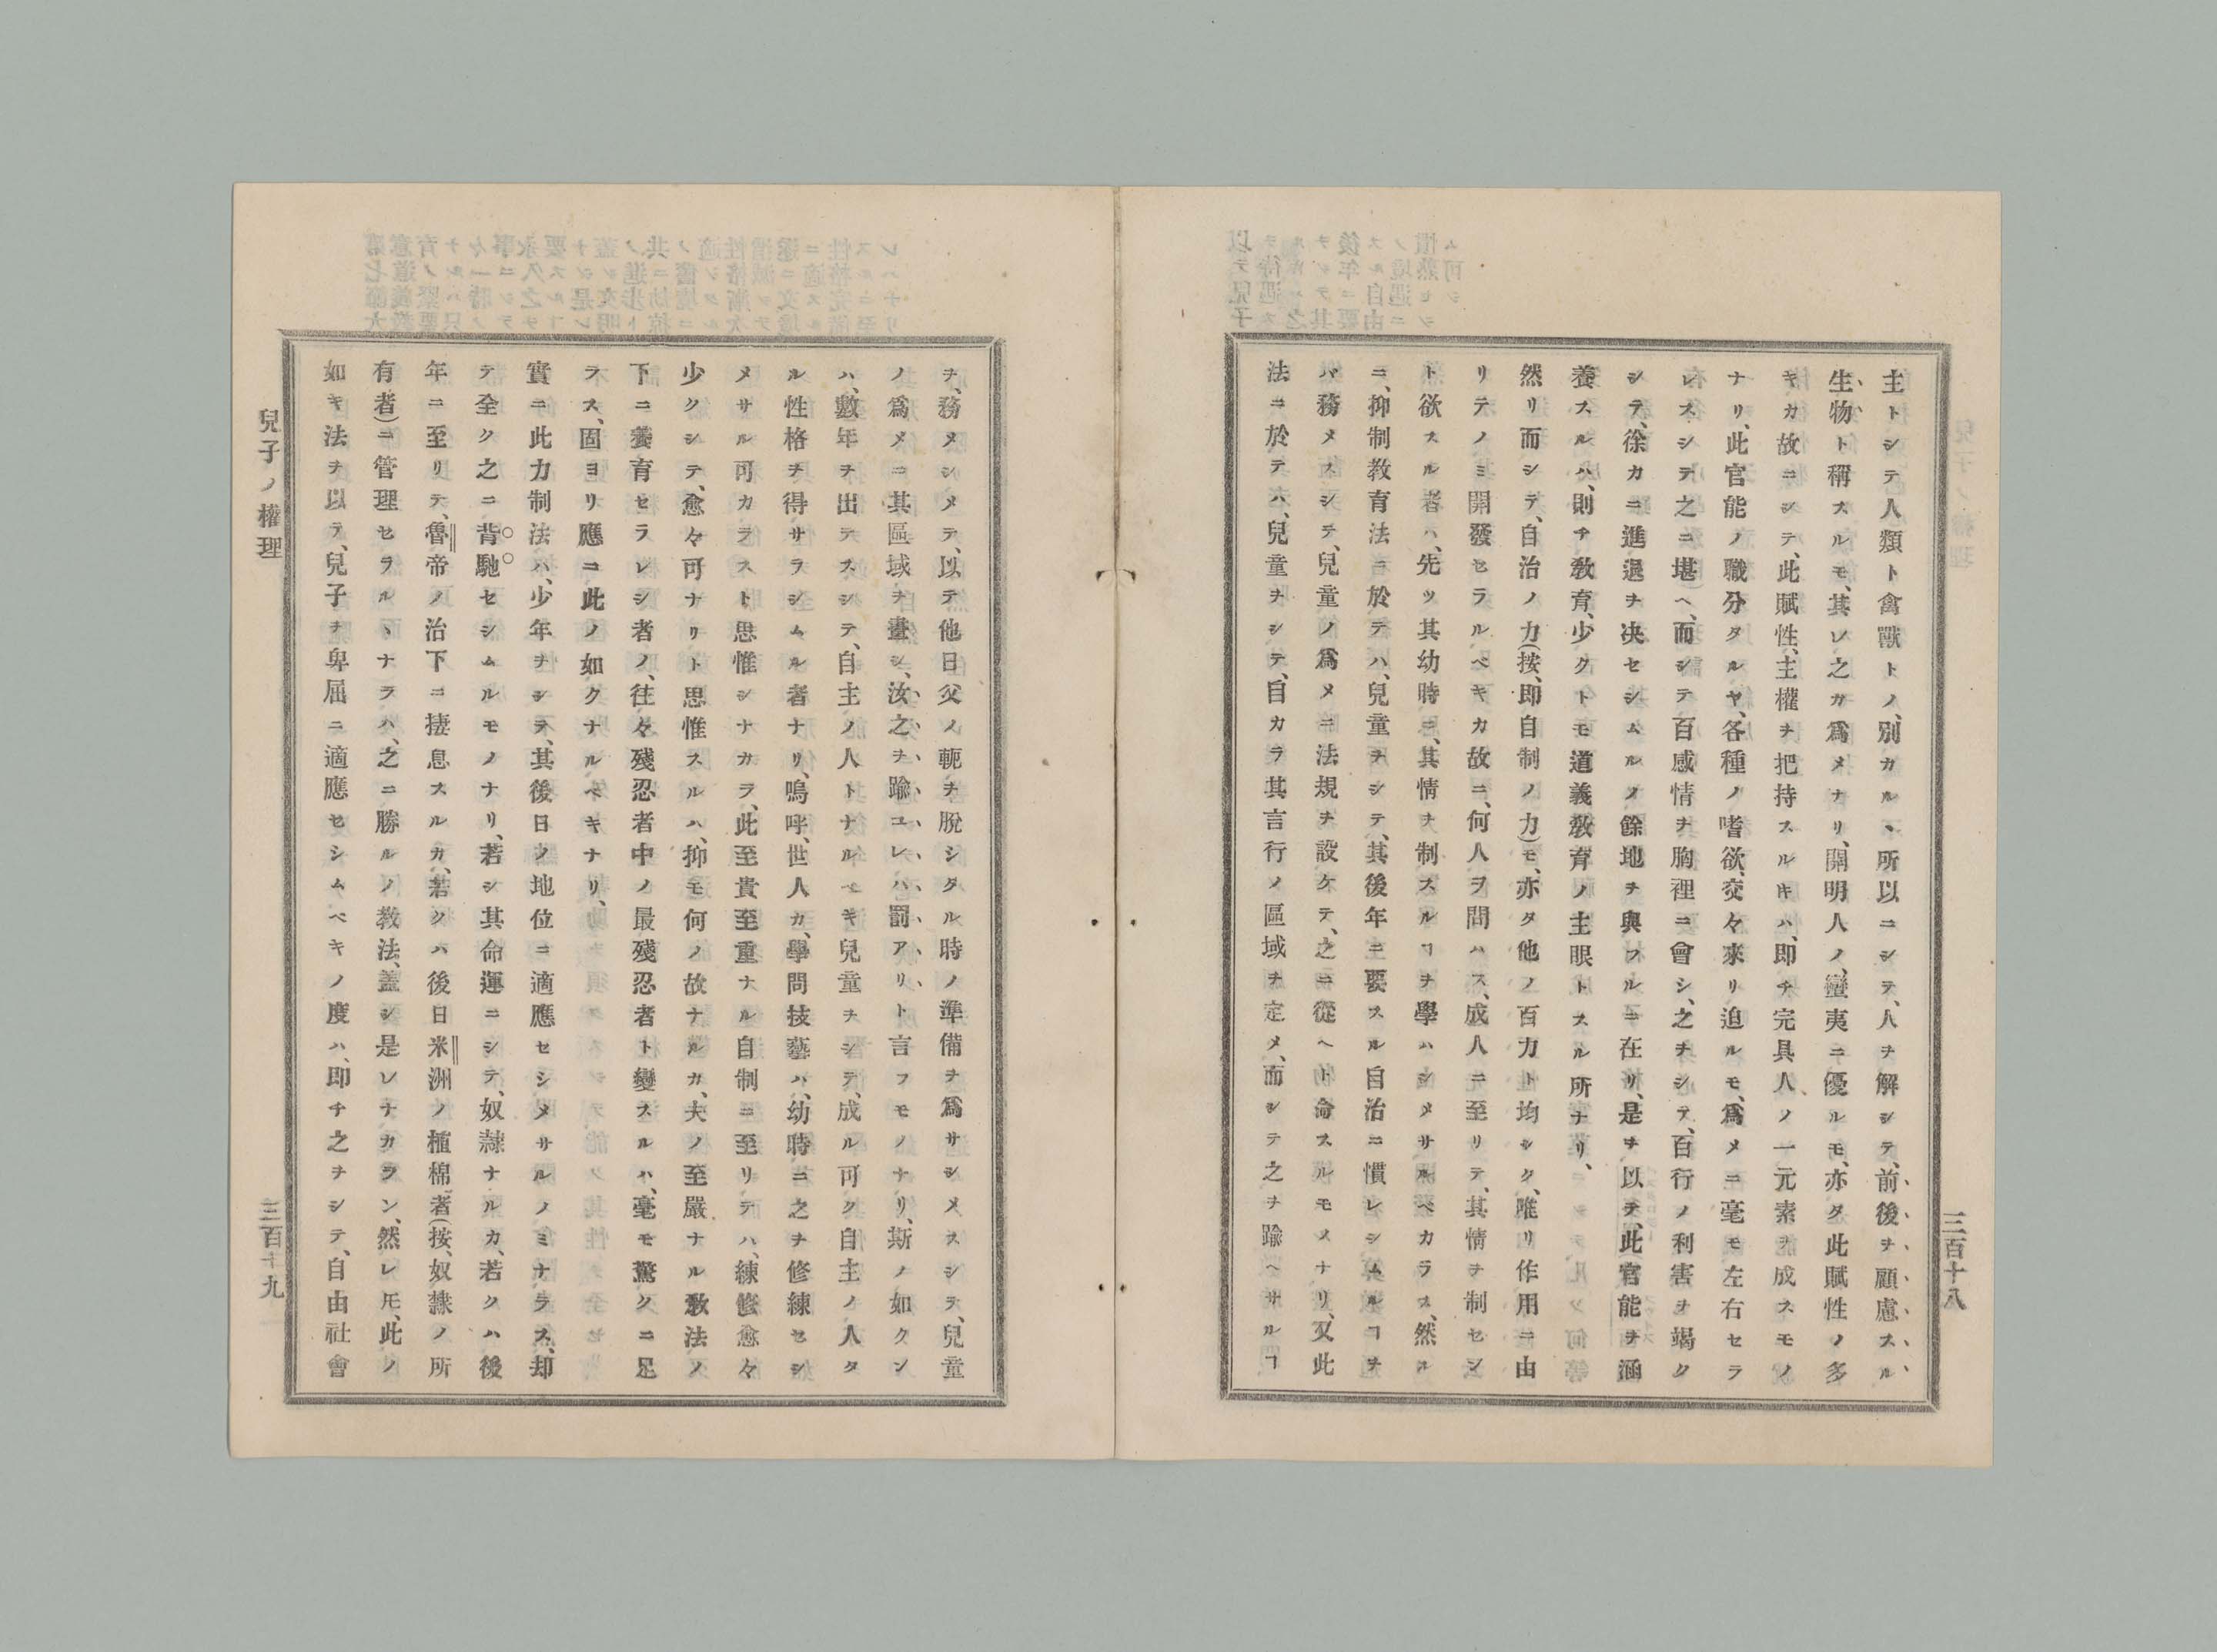 三百十八
主トシテ人類ト禽獸トノ、別カルヽ所以ニシテ、人ヲ解シテ、前後ヲ顧慮スル
生物ト稱スルモ、其レ之カ爲メナリ、開明人ノ、蠻夷ニ優ルモ、亦タ此賦性ノ多
キカ故ニシテ、此賦性、主權ヲ把持スルキハ、即チ完具人ノ一元素ヲ成スモノ
ナリ、此官能ノ職分タルヤ、各種ノ嗜欲、交々來リ迫ルモ、爲メニ毫モ左右セラ
レスシテ之ニ堪ヘ、而シテ百感情ヲ胸裡ニ會シ、之ヲシテ、百行ノ利害ヲ竭ク
シテ、徐カニ進退ヲ决セシムルノ餘地ヲ與フルニ在リ、是ヲ以テ、此官能ヲ涵
養スルハ、則チ敎育、少クトモ道義敎育ノ主眼トスル所ナリ、
然リ而シテ、自治ノ力(按、即自制ノ力)モ、亦タ他ノ百力ト均シク、唯リ作用ニ由
リテノミ開發セラルベキカ故ニ、何人ヲ問ハス、成人ニ至リテ、其情ヲ制セン
ト欲スル者ハ、先ツ其幼時ニ、其情ヲ制スルヿヲ學ハシメサルベカラス、然ル
ニ、抑制敎育法ニ於テハ、兒童ヲシテ、其後年ニ要スル自治ニ慣レシムルヿヲ
ハ務メスシテ、兒童ノ爲メニ法規ヲ設ケテ、之ニ從ヘト命スルモノナリ、又此
法ニ於テハ、兒童ヲシテ、自カラ其言行ノ區域ヲ定メ、而シテ之ヲ踰ヘサルヿ
ヲ、務メシメテ、以テ他日父ノ軛ヲ脱シタル時ノ準備ヲ爲サシメスシテ、兒童
ノ爲メニ其區域ヲ畫シ、汝之ヲ踰ユレハ罰アリト言フモノナリ、斯ノ如クン
ハ、數年ヲ出テスシテ、自主ノ人トナルベキ兒童ヲシテ、成ル可ク自主ノ人タ
ル性格ヲ得サラシムル者ナリ、嗚呼、世人カ、學問技藝ハ、幼時ニ之ヲ修練セシ
メサル可カラスト思惟シナカラ、此至貴至重ナル自制ニ至リテハ、練修愈々
少クシテ、愈々可ナリト思惟スルハ、抑モ何ノ故ナルカ、夫ノ至嚴ナル敎法ノ
下ニ養育セラレシ者ノ、往々殘忍者中ノ最殘忍者ト變スルハ、毫モ驚クニ足
ラス、固ヨリ應ニ此ノ如クナルベキナリ、
實ニ此力制法ハ、少年ヲシテ、其後日ノ地位ニ適應セシメサルノミナラス、却
テ全ク之ニ背馳セシムルモノナリ、若シ其命運ニシテ、奴隷ナルカ、若クハ後
年ニ至リテ、魯帝ノ治下ニ捿息スルカ、若クハ後日米洲ノ植棉者(按、奴隷ノ所
有者)ニ管理セラルヽナラハ、之ニ勝ルノ教法、蓋シ是レナカラン、然レ𪜈、此ノ
如キ法ヲ以テ、兒子ヲ卑屈ニ適應セシムベキノ度ハ、即チ之ヲシテ、自由社會
兒子ノ權理
三百十九